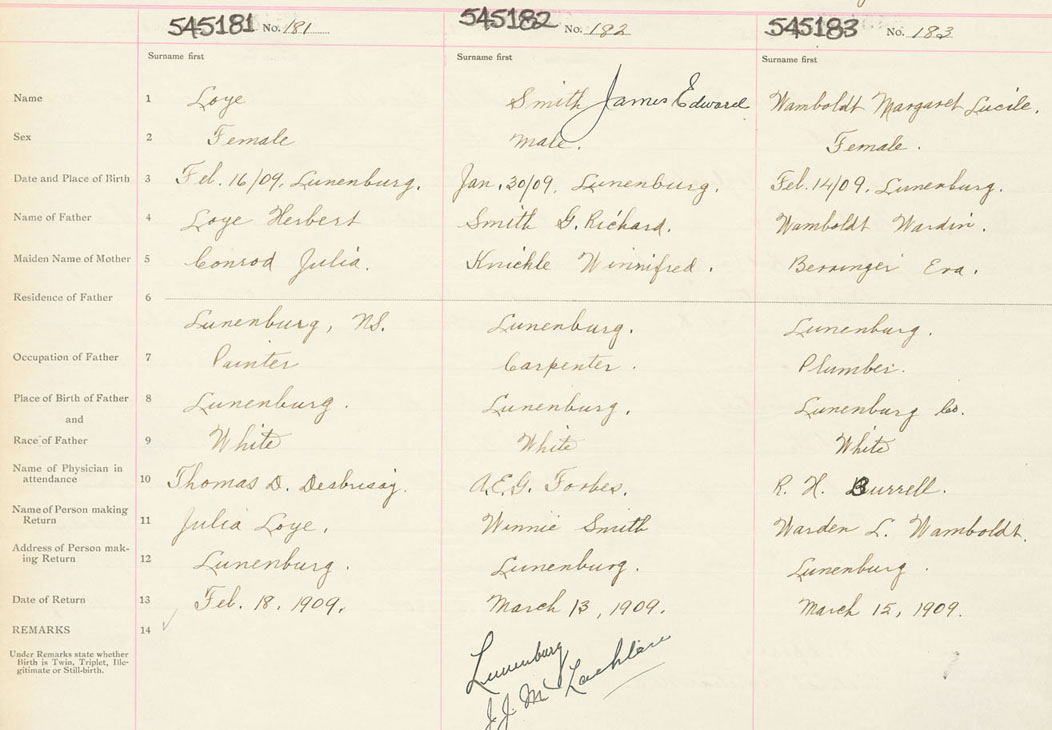 545181 No. 181 545182 No. 182 545183 No. 183
Surname first Surname first Surname first
Name 1 Loye Smith James Edward Wamboldt Margaret Lucile.
Sex 2 Female Male. Female.
Date and Place of Birth 3 Feb. 16/09. Lunenburg. Jan. 30/09. Lunenburg. Feb. 14/09. Lunenburg.
Name of Father 4 Loye Herbert Smith G. Richard. Wamboldt Wardin.
Maiden Name of Mother 5 Conrod Julia. Knickle Winnifred. Eva.
Residence of Father 6
Lunenburg, NS. Lunenburg. Lunenburg.
Occupation of Father 7 Painter Carpenter. Plumber.
Place of Birth of Father 8 Lunenburg. Lunenburg. Lunenburg Co.
and
Race of Father 9 White White White
Name of Physician in
attendance 10 Thomas D. Desbrisay. A.E.G. Forbes. R. H. Burrell.
Name of Person making
Return 11 Julia Loye. Winnie Smith Warden L. Wamboldt.
Address of Person mak-
ing Return 12 Lunenburg. Lunenburg. Lunenburg.
Date of Return 13 Feb. 18, 1909. March 13, 1909. March 15, 1909.
REMARKS 14
Under Remarks state whether
Birth is Twin, Triplet, Ille-
gitimate or Still-birth.
Lunenburg
J.J. McLachlan